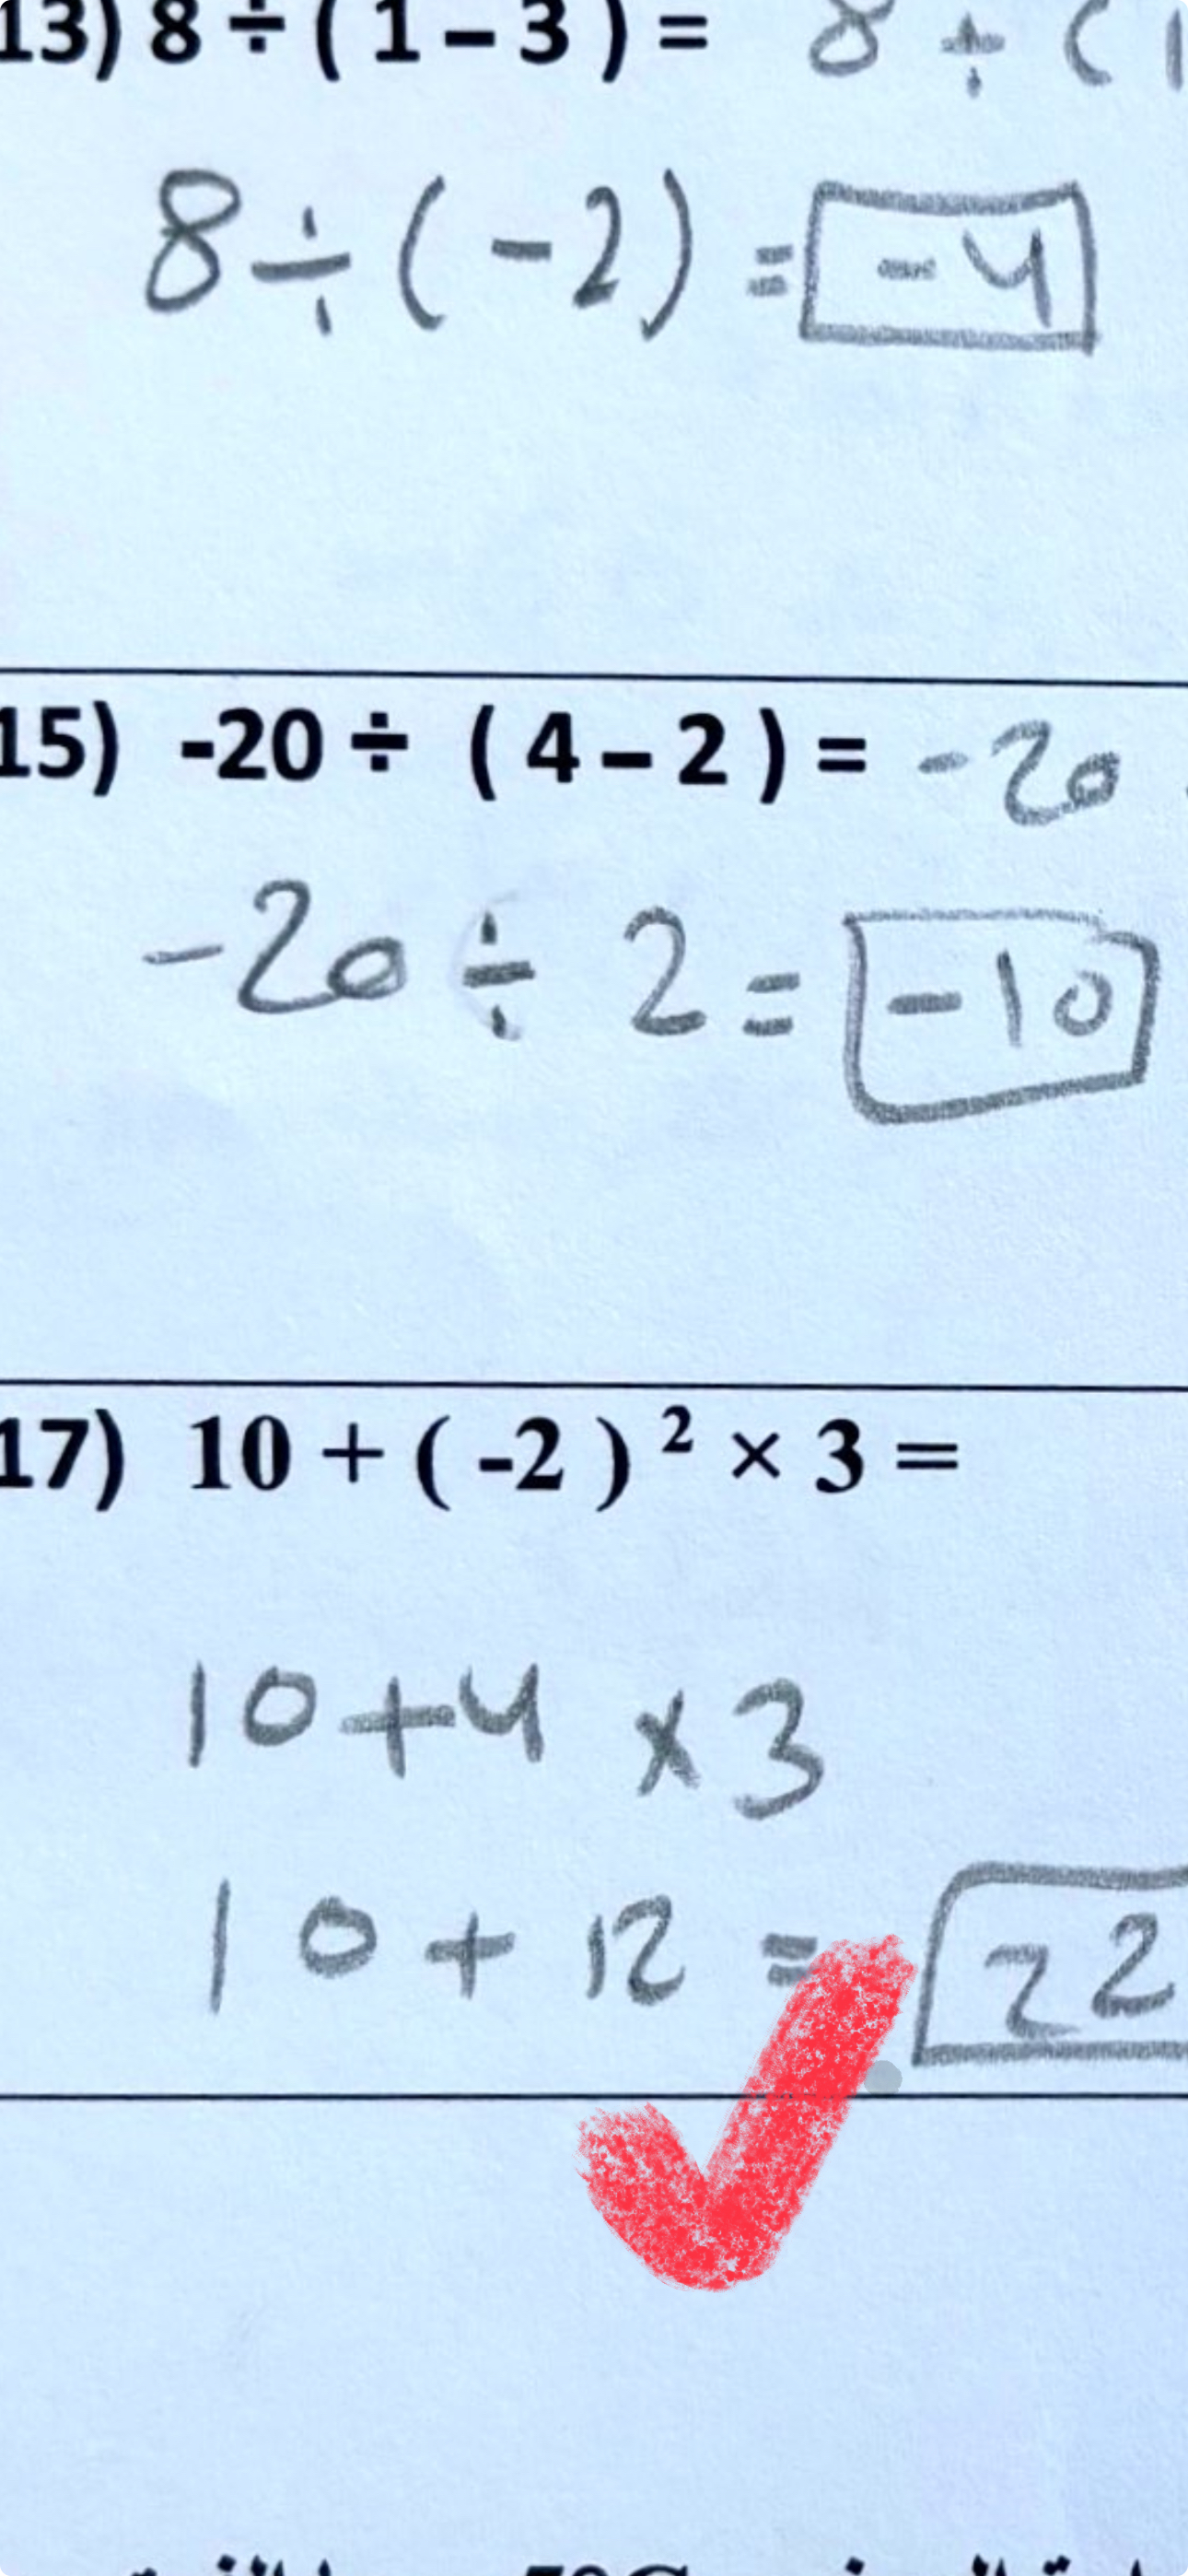 13) 8 ÷ ( 1 – 3 ) = 8 ÷ ( 1
8 ÷ ( -2 ) = -4
15) -20 ÷ ( 4 – 2 ) = -20
-20 ÷ 2 = -10
17) 10 + ( -2 ) ² × 3 =
10 + 4 × 3
10 + 12 = 22